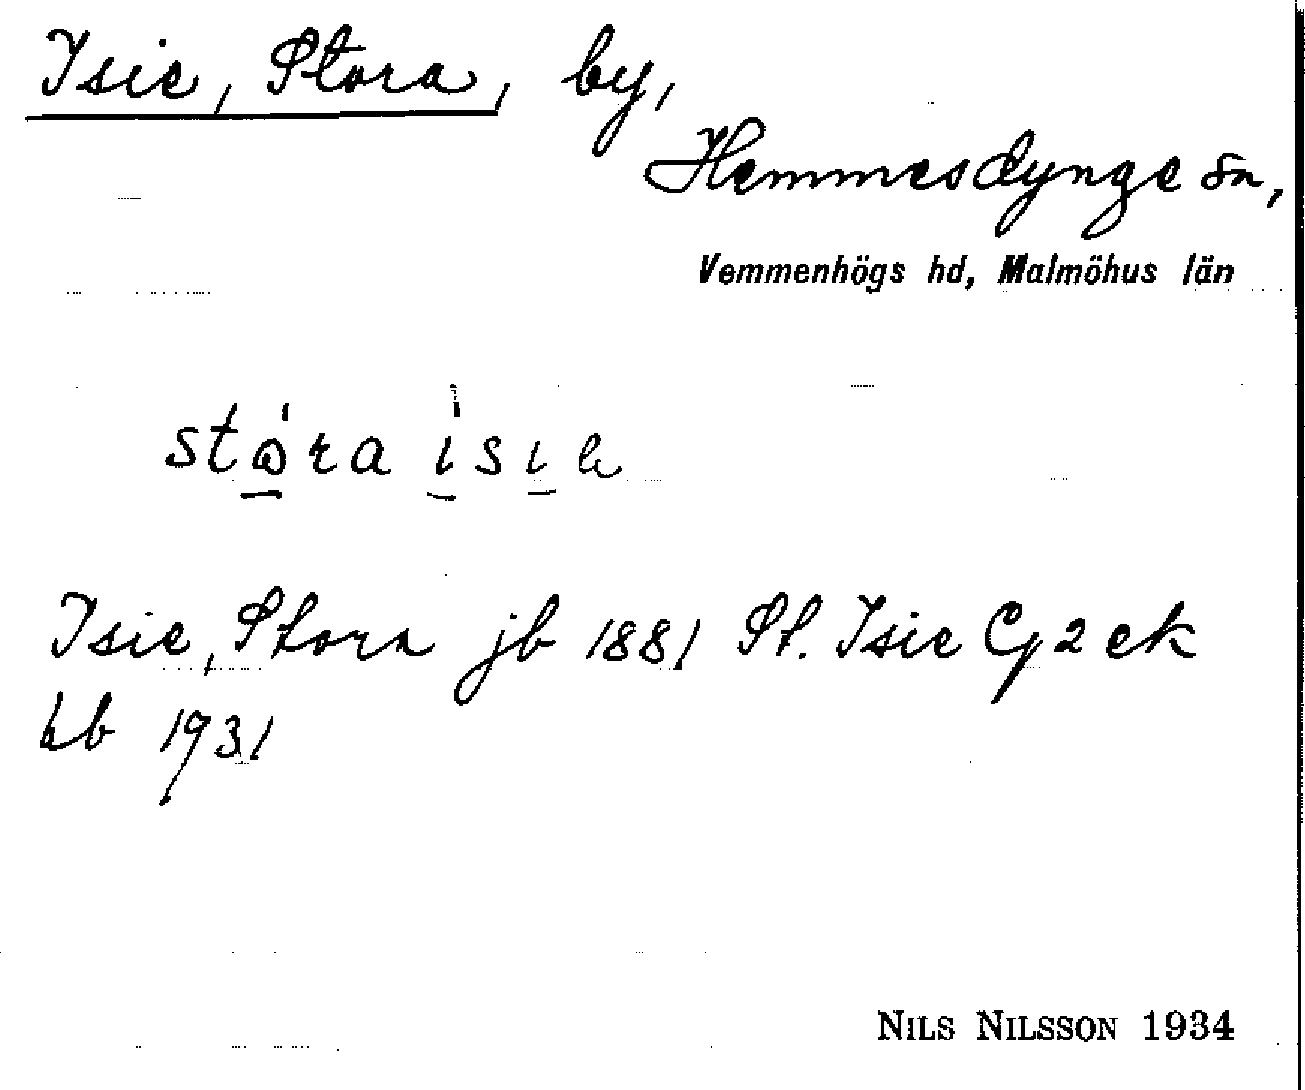 Isie, Stora, by,
Hemmesdynge sn,
Vemmenhögs hd, Malmöhus län
stora isie
Isie, Stora jb 1881 St. Isie Cy 2 ek
hb 1931
NILS NILSSON 1934